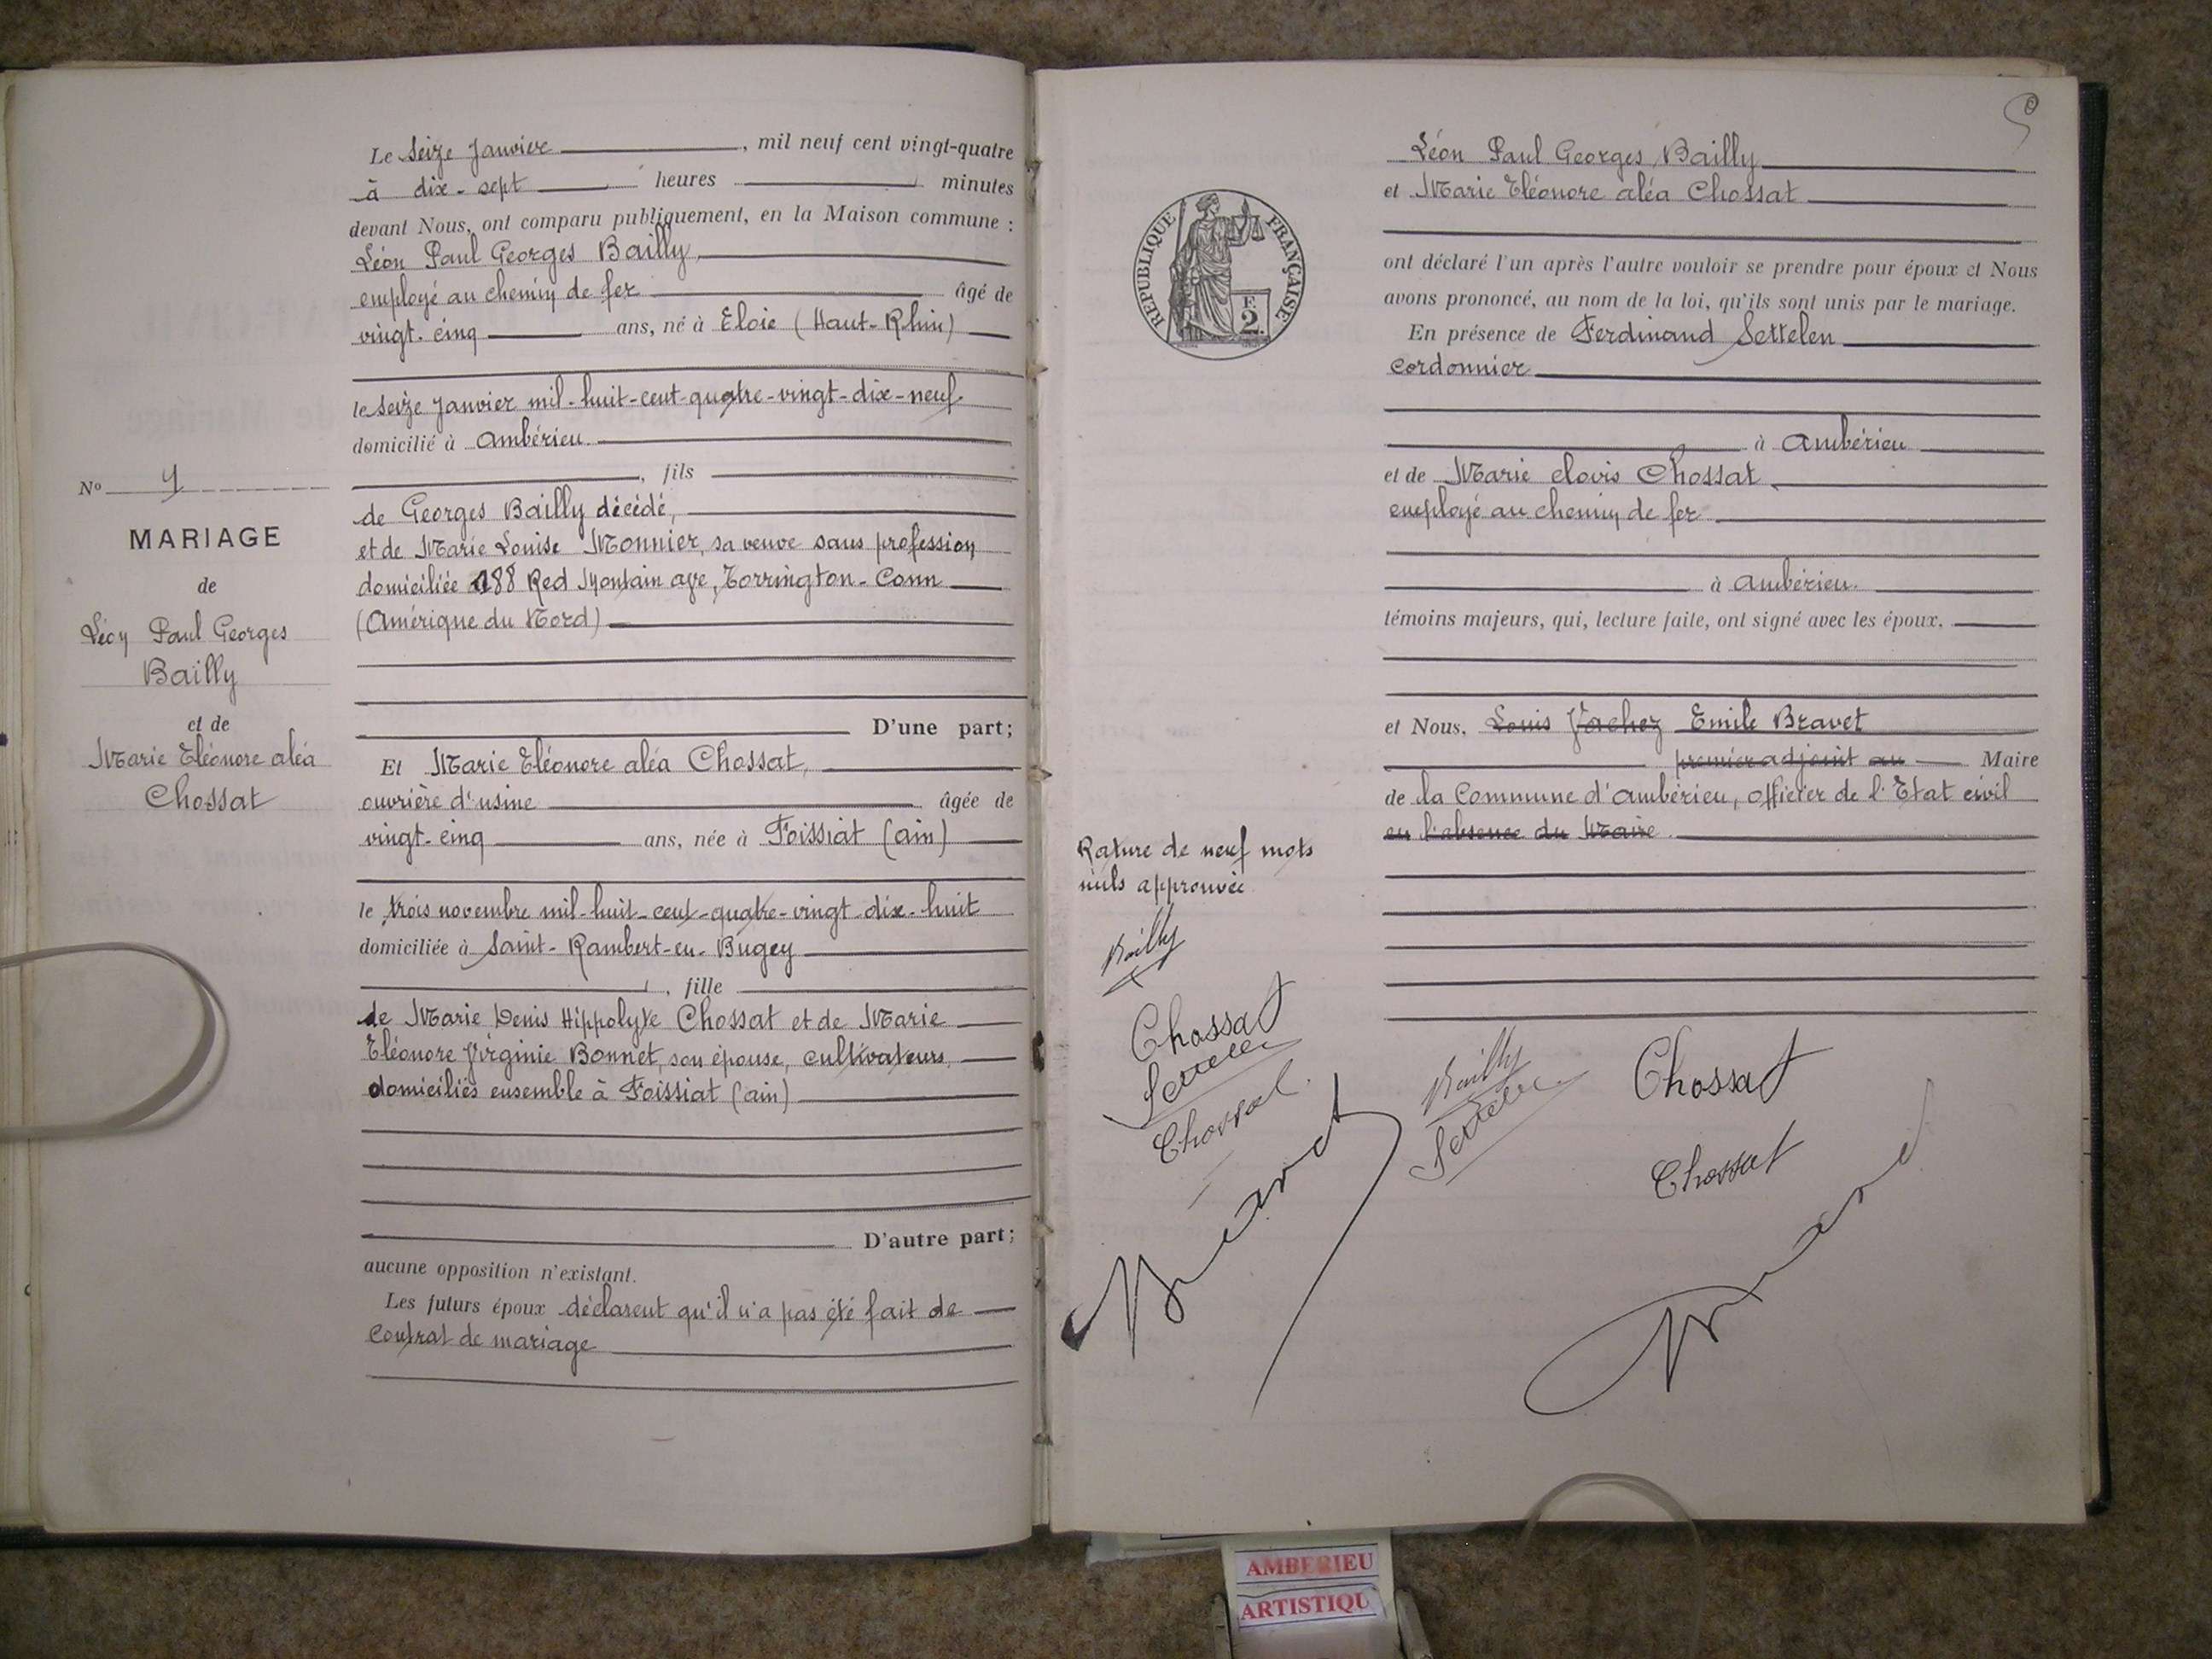 Le seize Janvier, mil neuf cent vingt-quatre
à dix-sept heures minutes
devant Nous, ont comparu publiquement, en la Maison commune :
Léon Paul Georges Bailly,
employé au chemin de fer âgé de
vingt-cinq ans, né à Eloie (Haut-Rhin)
le seize Janvier mil-huit-cent-quatre-vingt-dix-neuf
domicilié à Ambérieu
, fils
de Georges Bailly décédé,
et de Marie Louise Monnier, sa veuve sans profession
domiciliée 188 Red Montain ave, Torrington-Conn
(Amérique du Nord)
D'une part;
Et Marie Eléonore aléa Chossat,
ouvrière d'usine âgée de
vingt-cinq ans, née à Foissiat (ain)
le trois novembre mil-huit-cent-quatre-vingt-dix-huit
domiciliée à Saint-Rambert-en-Bugey
, fille
de Marie Denis Hippolyte Chossat et de Marie
Eléonore Virginie Bonnet, son épouse, cultivateurs,
domiciliés ensemble à Foissiat (ain)
D'autre part;
aucune opposition n'existant.
Les futurs époux déclarent qu'il n'a pas été fait de
contrat de mariage
No
MARIAGE
de
Léon Paul Georges
Bailly
et de
Marie Eléonore aléa
Chossat
RÉPUBLIQUE FRANÇAISE
F.
2
Léon Paul Georges Bailly
et Marie Eléonore aléa Chossat
ont déclaré l'un après l'autre vouloir se prendre pour époux et Nous
avons prononcé, au nom de la loi, qu'ils sont unis par le mariage.
En présence de Ferdinand Settelen
cordonnier
à Ambérieu
et de Marie clovis Chossat,
employé au chemin de fer
à Ambérieu.
témoins majeurs, qui, lecture faite, ont signé avec les époux.
et Nous, Louis Vachez Emile Bravet
premier adjoint au Maire
de la Commune d'Ambérieu, officier de l'Etat civil
en l'absence du Maire.
Rature de neuf mots
nuls approuvée
Bailly
Chossat
Settelen
Chossat
Bravet
Bailly
Settelen
Chossat
Chossat
Bravet
AMBERIEU
ARTISTIQU